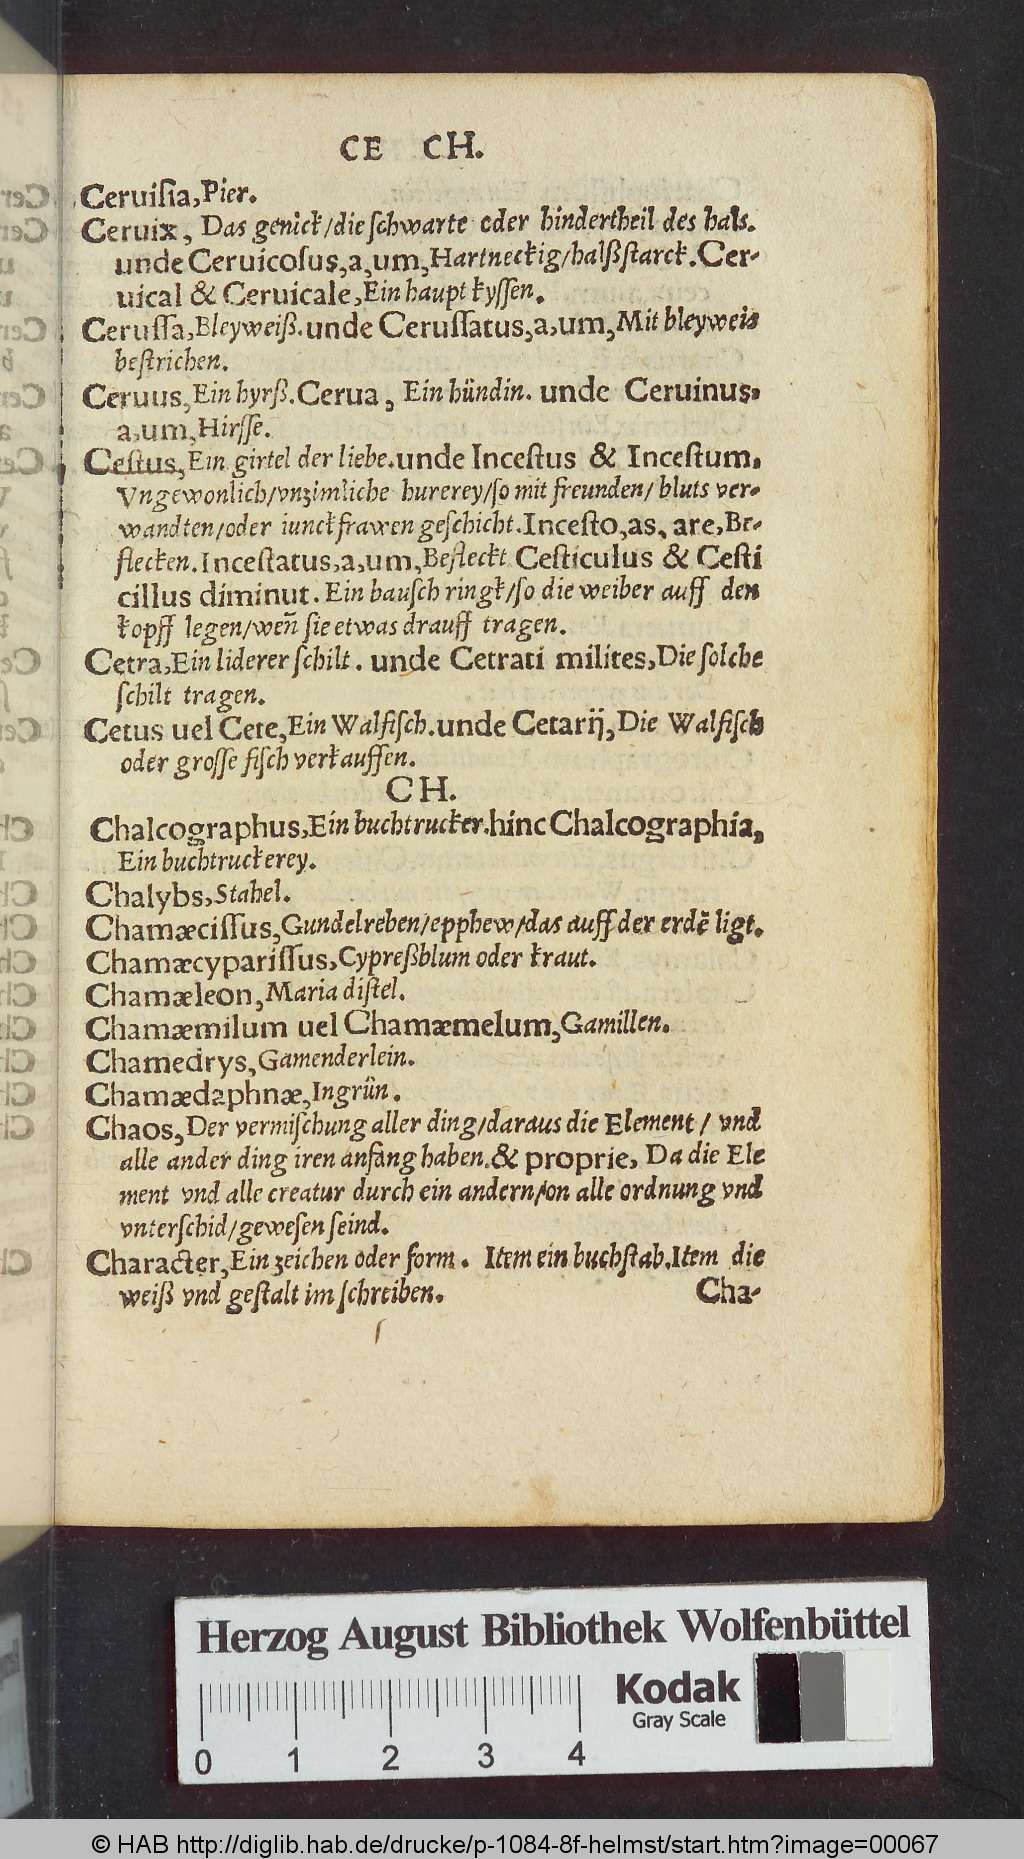 CE CH.
Ceruiſia, Pier.
Ceruix, Das genick/die ſchwarte oder hindertheil des hals.
unde Ceruicoſus, a, um, Hartneckig/halßſtarck. Cer-
uical & Ceruicale, Ein haupt kyſſen.
Ceruſſa, Bleyweiß. unde Ceruſſatus, a, um, Mit bleyweis
beſtrichen.
Ceruus, Ein hyrß. Cerua, Ein hündin. unde Ceruinus,
a, um, Hirſſe.
Ceſtus, Ein girtel der liebe. unde Inceſtus & Inceſtum,
Vngewonlich/vnzimliche hurerey/ſo mit freunden/ bluts ver-
wandten/oder iunckfrawen geſchicht. Inceſto, as, are, Be-
flecken. Inceſtatus, a, um, Befleckt Ceſticulus & Ceſti
cillus diminut. Ein bauſch ringk/ſo die weiber auff den
kopff legen/weñ ſie etwas drauff tragen.
Cetra, Ein liderer ſchilt. unde Cetrati milites, Die ſolche
ſchilt tragen.
Cetus uel Cete, Ein Walfiſch. unde Cetarij, Die Walfiſch
oder groſſe fiſch verkauffen.
CH.
Chalcographus, Ein buchtrucker. hinc Chalcographia,
Ein buchtruckerey.
Chalybs, Stahel.
Chamæciſſus, Gundelreben/epphew/das auff der erdẽ ligt.
Chamæcypariſſus, Cypreßblum oder kraut.
Chamæleon, Maria diſtel.
Chamæmilum uel Chamæmelum, Gamillen.
Chamedrys, Gamenderlein.
Chamædaphnæ, Ingrün.
Chaos, Der vermiſchung aller ding/daraus die Element/ vnd
alle ander ding iren anfang haben. & proprie, Da die Ele
ment vnd alle creatur durch ein andern/on alle ordnung vnd
vnterſchid/geweſen ſeind.
Character, Ein zeichen oder form. Item ein buchſtab. Item die
weiß vnd geſtalt im ſchreiben.
Cha-
Herzog August Bibliothek Wolfenbüttel
Kodak
Gray Scale
0 1 2 3 4
© HAB http://diglib.hab.de/drucke/p-1084-8f-helmst/start.htm?image=00067